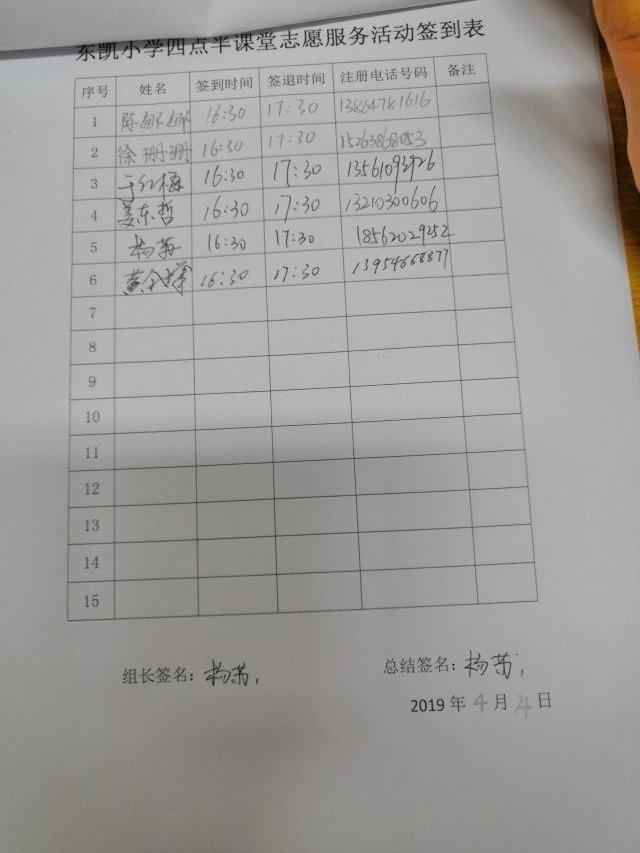 东凯小学四点半课堂志愿服务活动签到表
序号 姓名 签到时间 签退时间 注册电话号码 备注
1 陈娜娜 16:30 17:30 13864781616
2 徐珊珊 16:30 17:30 15263868053
3 于红梅 16:30 17:30 13561092926
4 姜东哲 16:30 17:30 13210300606
5 杨芮 16:30 17:30 18562029252
6 16:30 17:30 13954668877
7
8
9
10
11
12
13
14
15
组长签名：杨芮， 总结签名：杨芮，
2019年4月4日